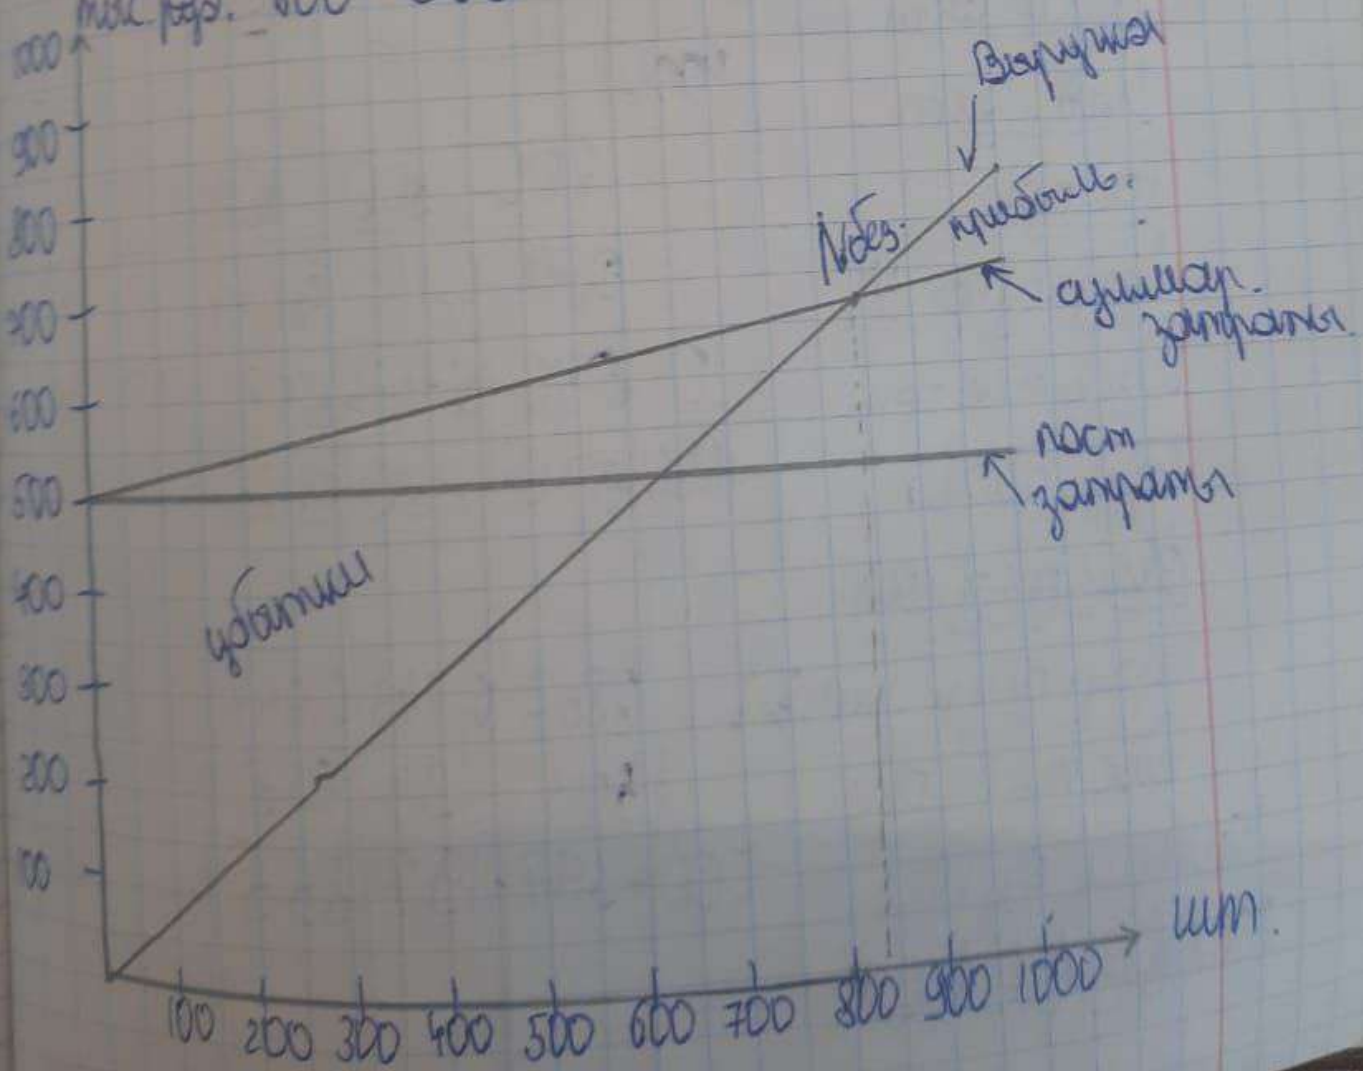 тыс. руб.
1000
900
800
700
600
500
400
300
200
100
Выручка
Nбез.
прибыль.
суммар.
затраты.
пост
затраты
убытки
100 200 300 400 500 600 700 800 900 1000
шт.